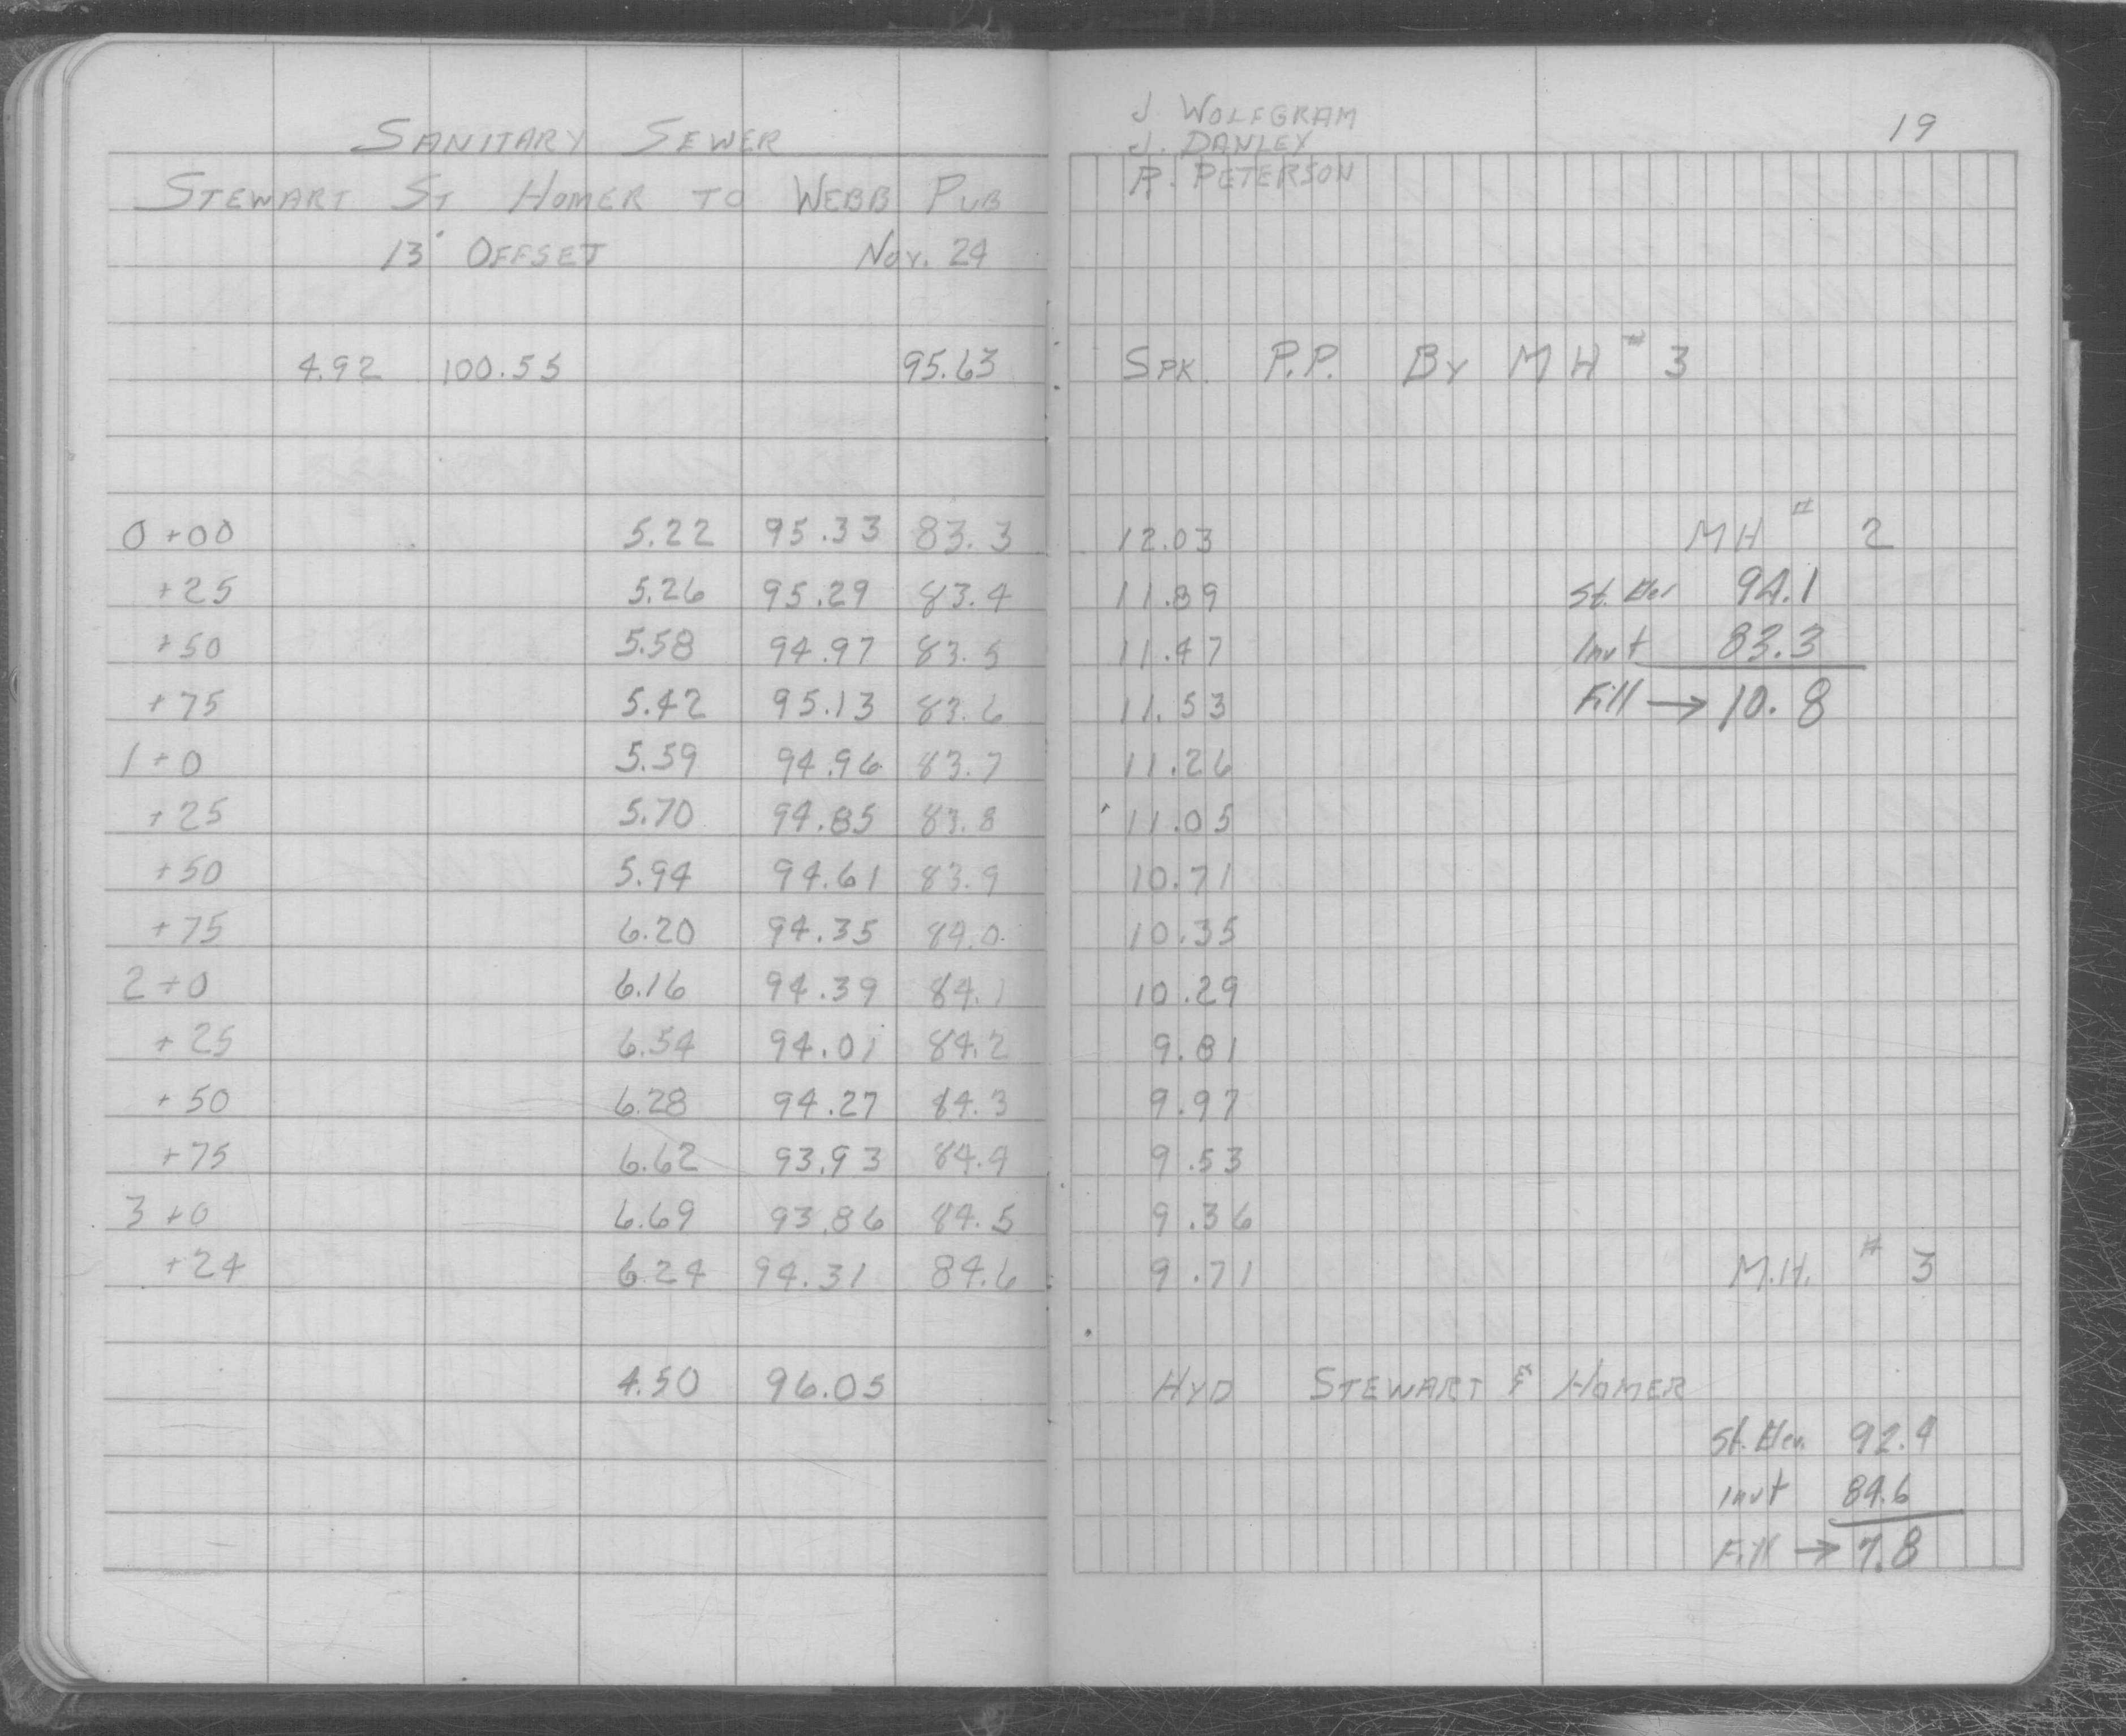 SANITARY SEWER
STEWART ST HOMER TO WEBB PUB
13' OFFSET NOV. 24
4.92 100.55 95.63
0+00 5.22 95.33 83.3
+25 5.26 95.29 83.4
+50 5.58 94.97 83.5
+75 5.42 95.13 83.6
1+0 5.59 94.96 83.7
+25 5.70 94.85 83.8
+50 5.94 94.61 83.9
+75 6.20 94.35 84.0
2+0 6.16 94.39 84.1
+25 6.54 94.01 84.2
+50 6.28 94.27 84.3
+75 6.62 93.93 84.4
3+0 6.69 93.86 84.5
+24 6.24 94.31 84.6
4.50 96.05
J WOLFGRAM
J. DANLEY
R. PETERSON
19
SPK. P.P. BY MH # 3
12.03 MH # 2
11.89 St. Elev 94.1
11.47 Invt 83.3
11.53 Fill → 10.8
11.26
11.05
10.71
10.35
10.29
9.81
9.97
9.53
9.36
9.71 M.H. # 3
HYD STEWART & HOMER
St. Elev. 92.4
Invt 84.6
Fill → 7.8